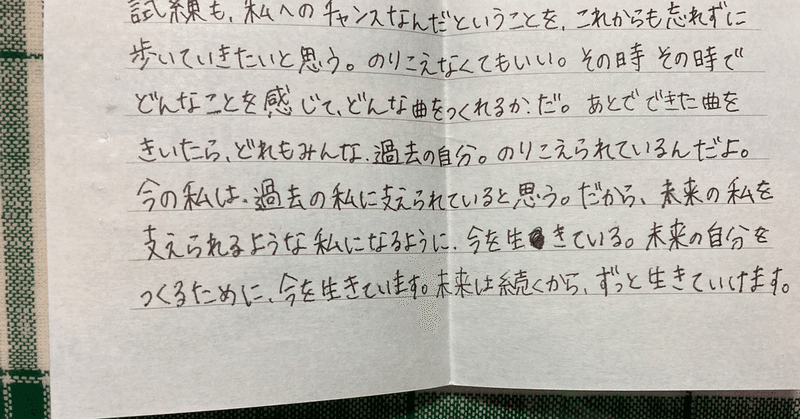 試練も、私へのチャンスなんだということを、これからも忘れずに
歩いていきたいと思う。のりこえなくてもいい。その時その時で
どんなことを感じて、どんな曲をつくれるか、だ。あとでできた曲を
きいたら、どれもみんな、過去の自分。のりこえられているんだよ。
今の私は、過去の私に支えられていると思う。だから、未来の私を
支えられるような私になるように、今を生きている。未来の自分を
つくるために、今を生きています。未来は続くから、ずっと生きていけます。